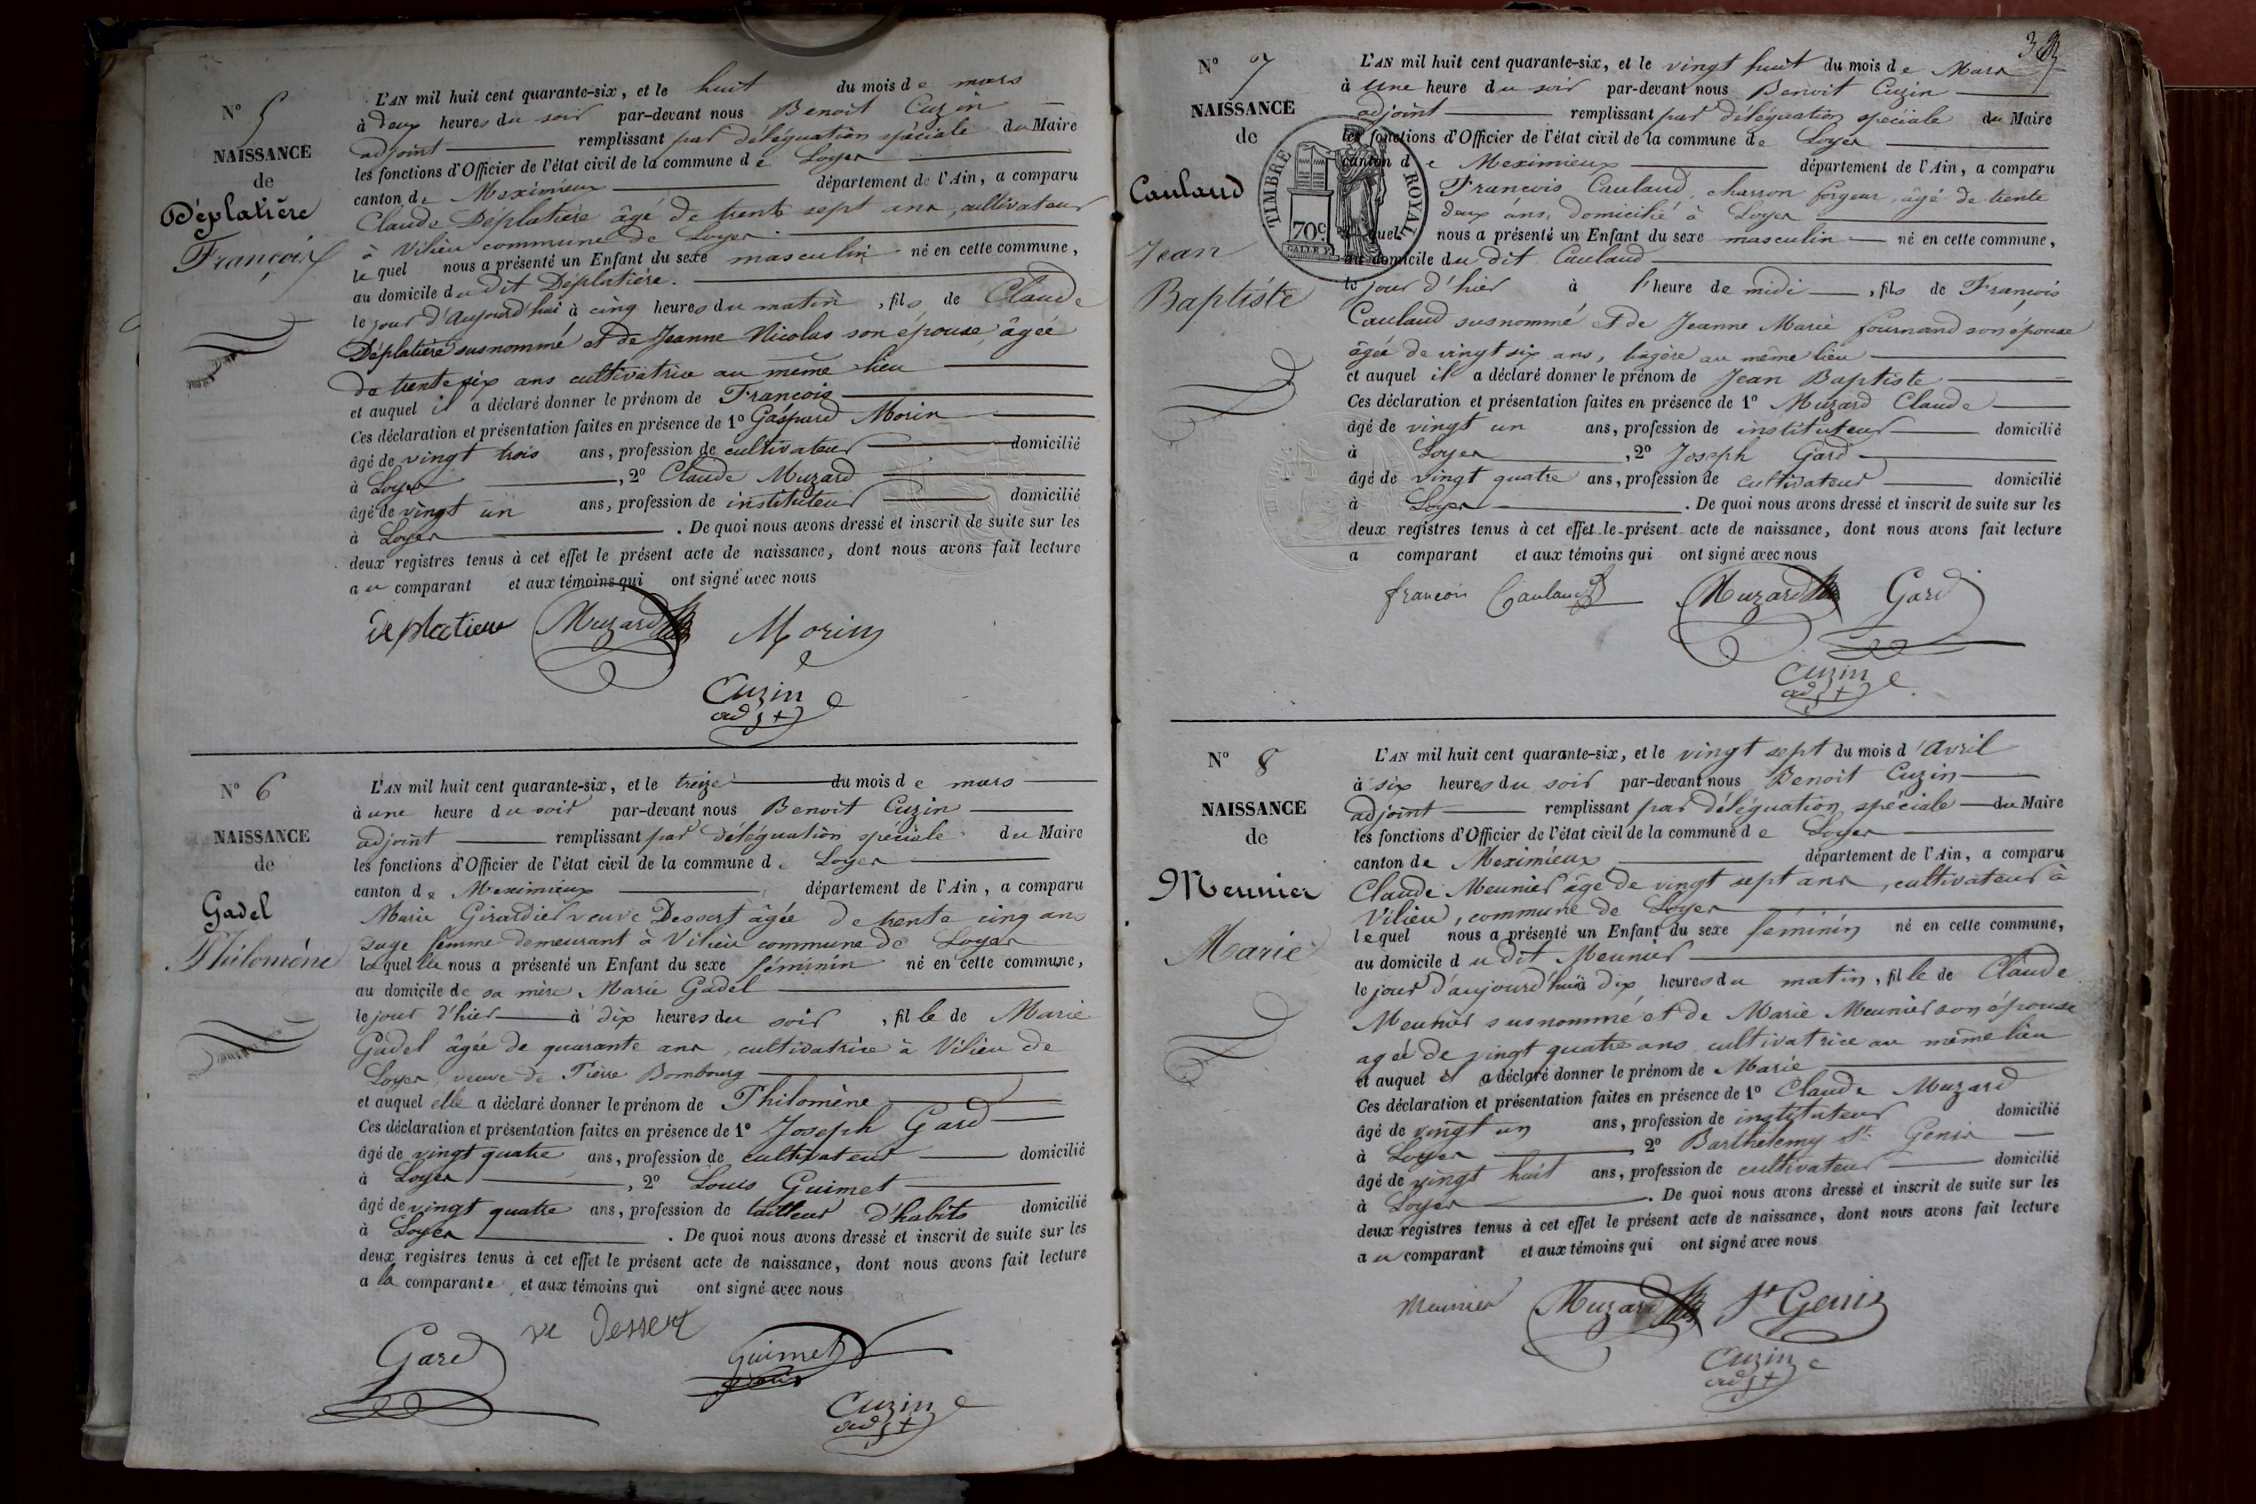 N° 5
NAISSANCE
de
Déplatière
François
L'AN mil huit cent quarante-six, et le huit du mois de mars
à deux heures du soir par-devant nous Benoit Cuzin
adjoint remplissant par délégation spéciale du Maire
les fonctions d'Officier de l'état civil de la commune de Loyes
canton de Meximieux département de l'Ain, a comparu
Claude Déplatière âgé de trente sept ans, cultivateur
à Vilieu commune de Loyes
lequel nous a présenté un Enfant du sexe masculin né en cette commune,
au domicile du dit Déplatière.
le jour d'aujourd'hui à cinq heures du matin, fils de Claude
Déplatière susnommé et de Jeanne Nicolas son épouse, âgée
de trente six ans cultivatrice au même lieu
et auquel il a déclaré donner le prénom de François
Ces déclaration et présentation faites en présence de 1° Gaspard Morin
âgé de vingt trois ans, profession de cultivateur domicilié
à Loyes, 2° Claude Muzard
âgé de vingt un ans, profession de instituteur domicilié
à Loyes. De quoi nous avons dressé et inscrit de suite sur les
deux registres tenus à cet effet le présent acte de naissance, dont nous avons fait lecture
au comparant et aux témoins qui ont signé avec nous
Deplatiere Muzard Morin
Cuzin
adjt
N° 6
NAISSANCE
de
Gadel
Philomène
L'AN mil huit cent quarante-six, et le treize du mois de mars
à une heure du soir par-devant nous Benoit Cuzin
adjoint remplissant par délégation spéciale du Maire
les fonctions d'Officier de l'état civil de la commune de Loyes
canton de Meximieux département de l'Ain, a comparu
Marie Girardier veuve Dessert âgée de trente cinq ans
sage femme demeurant à Vilieu commune de Loyes
laquelle nous a présenté un Enfant du sexe féminin né en cette commune,
au domicile de sa mère Marie Gadel
le jour d'hier à dix heures du soir, fille de Marie
Gadel âgée de quarante ans, cultivatrice à Vilieu de
Loyes, veuve de Pierre Bombourg
et auquel elle a déclaré donner le prénom de Philomène
Ces déclaration et présentation faites en présence de 1° Joseph Gard
âgé de vingt quatre ans, profession de cultivateur domicilié
à Loyes, 2° Louis Guimet
âgé de vingt quatre ans, profession de tailleur d'habits domicilié
à Loyes. De quoi nous avons dressé et inscrit de suite sur les
deux registres tenus à cet effet le présent acte de naissance, dont nous avons fait lecture
a la comparante et aux témoins qui ont signé avec nous
Gard ve Dessert Guimet
Louis
Cuzin
adjt
N° 7
NAISSANCE
de
Caulaud
Jean
Baptiste
TIMBRE ROYAL
70c
L'AN mil huit cent quarante-six, et le vingt huit du mois de Mars
à une heure du soir par-devant nous Benoit Cuzin
adjoint remplissant par délégation spéciale du Maire
les fonctions d'Officier de l'état civil de la commune de Loyes
canton de Meximieux département de l'Ain, a comparu
François Caulaud, charron forgeur, âgé de trente
deux ans, domicilié à Loyes
lequel nous a présenté un Enfant du sexe masculin né en cette commune,
au domicile du dit Caulaud
le jour d'hier à l'heure de midi, fils de François
Caulaud susnommé et de Jeanne Marie fournand son épouse
âgée de vingt six ans, lingère au même lieu
et auquel il a déclaré donner le prénom de Jean Baptiste
Ces déclaration et présentation faites en présence de 1° Muzard Claude
âgé de vingt un ans, profession de instituteur domicilié
à Loyes, 2° Joseph Gard
âgé de vingt quatre ans, profession de cultivateur domicilié
à Loyes. De quoi nous avons dressé et inscrit de suite sur les
deux registres tenus à cet effet le présent acte de naissance, dont nous avons fait lecture
a comparant et aux témoins qui ont signé avec nous
françois Caulaud Muzard Gard
Cuzin
adjt
N° 8
NAISSANCE
de
Meunier
Marie
L'AN mil huit cent quarante-six, et le vingt sept du mois d'avril
à six heures du soir par-devant nous Benoit Cuzin
adjoint remplissant par délégation spéciale du Maire
les fonctions d'Officier de l'état civil de la commune de Loyes
canton de Meximieux département de l'Ain, a comparu
Claude Meunier âgé de vingt sept ans, cultivateur à
Vilieu, commune de Loyes
lequel nous a présenté un Enfant du sexe féminin né en cette commune,
au domicile du dit Meunier
le jour d'aujourd'hui à dix heures du matin, fille de Claude
Meunier susnommé et de Marie Meunier son épouse
agée de vingt quatre ans cultivatrice au même lieu
et auquel il a déclaré donner le prénom de Marie
Ces déclaration et présentation faites en présence de 1° Claude Muzard
âgé de vingt un ans, profession de instituteur domicilié
à Loyes, 2° Barthélemy St Genis
âgé de vingt huit ans, profession de cultivateur domicilié
à Loyes. De quoi nous avons dressé et inscrit de suite sur les
deux registres tenus à cet effet le présent acte de naissance, dont nous avons fait lecture
au comparant et aux témoins qui ont signé avec nous
Meunier Muzard St Genis
Cuzin
adjt